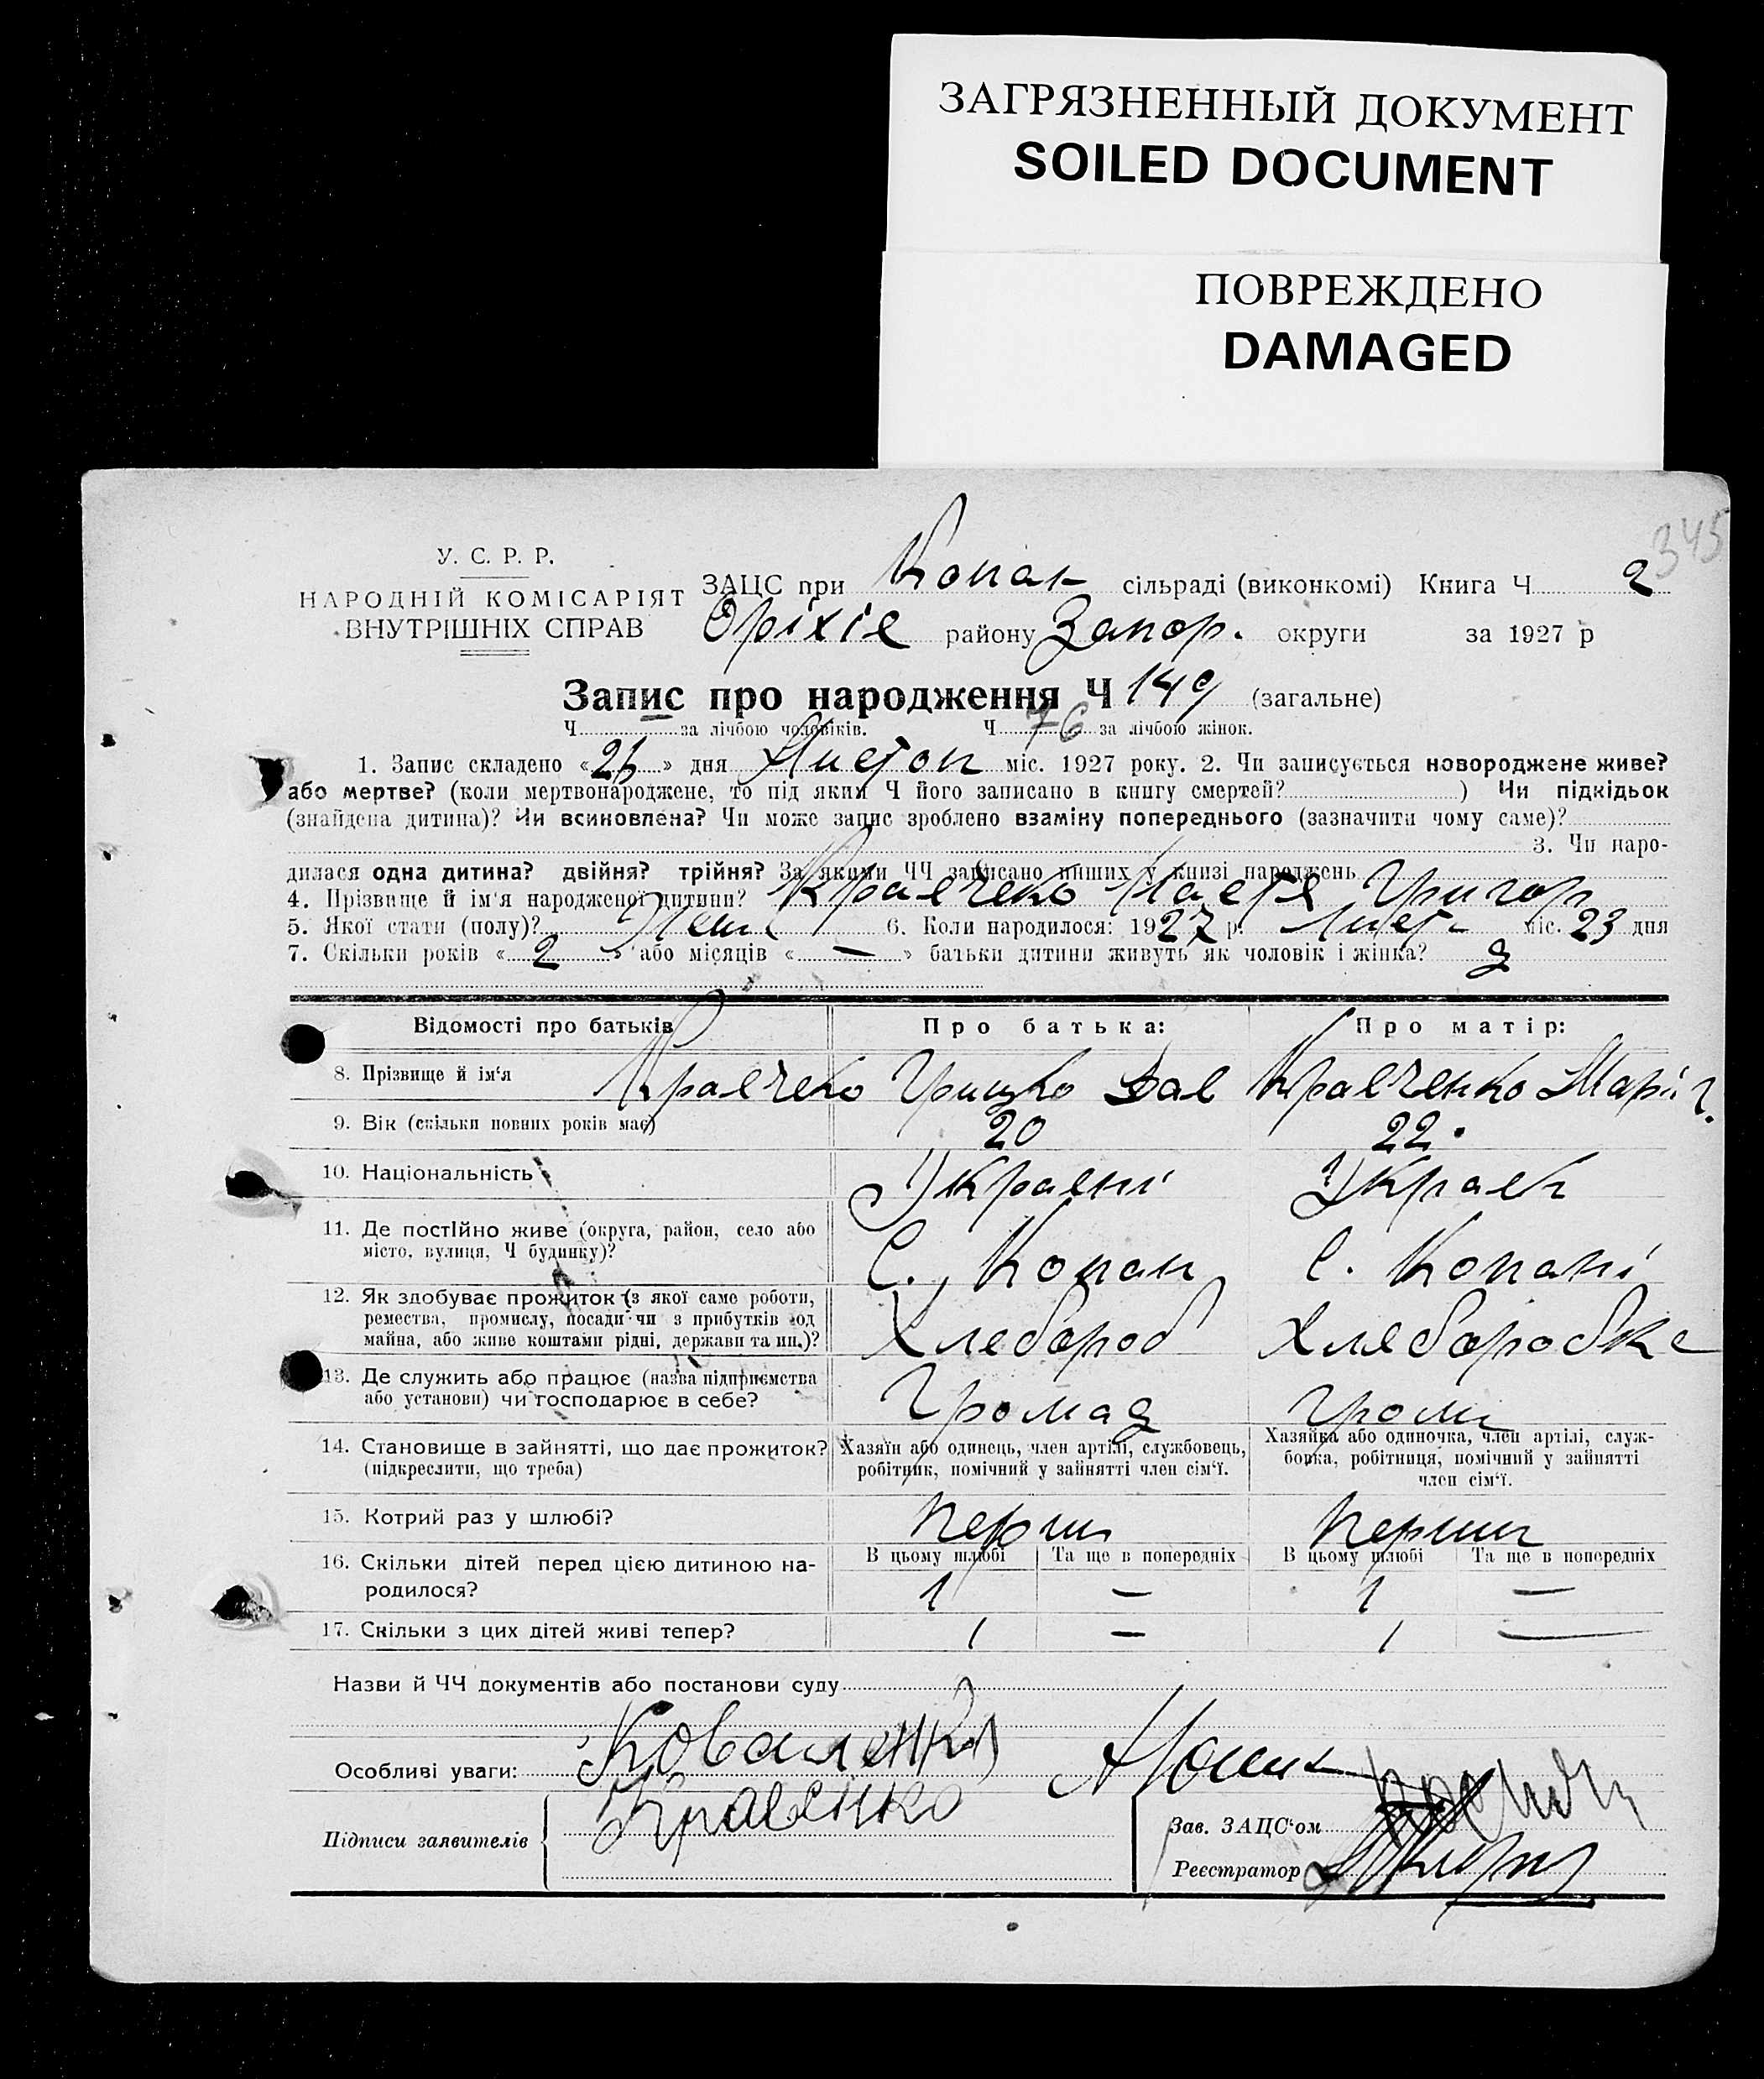 ЗАГРЯЗНЕННЫЙ ДОКУМЕНТ
SOILED DOCUMENT
ПОВРЕЖДЕНО
DAMAGED
345
У. С. Р. Р.
НАРОДНІЙ КОМІСАРІЯТ
ВНУТРІШНІХ СПРАВ
ЗАЦС при Копан сільраді (виконкомі) Книга Ч 2
Оріхів району Запор. округи за 1927 р
Запис про народження Ч 149 (загальне)
Ч — за лічбою чоловіків. Ч 76 за лічбою жінок.
1. Запис складено «26» дня Листоп міс. 1927 року. 2. Чи записується новороджене живе?
або мертве? (коли мертвонароджене, то під яким Ч його записано в книгу смертей? ) Чи підкідьок
(знайдена дитина)? Чи всиновлена? Чи може запис зроблено взаміну попереднього (зазначити чому саме)?
3. Чи наро-
дилася одна дитина? двійня? трійня? За якими ЧЧ записано инших у книзі народжень
4. Прізвище й ім'я народженої дитини? Кравчеко Настя Григор
5. Якої статі (полу)? Жін 6. Коли народилося: 1927 р. Лист міс. 23 дня
7. Скільки років «2» або місяців «—» батьки дитини живуть як чоловік і жінка? 2
Відомості про батьків
Про батька:
Про матір:
8. Прізвище й ім'я Кравчеко Грицко Сав Кравченко Марія
9. Вік (скільки повних років має) 20 22.
10. Національність Украені Украен
11. Де постійно живе (округа, район, село або місто, вулиця, Ч будинку)? С. Копан С. Копані
12. Як здобуває прожиток (з якої саме роботи, ремества, промислу, посади чи з прибутків од майна, або живе коштами рідні, держави та ин.)? Хлебороб Хлеборобка
13. Де служить або працює (назва підприємства або установи) чи господарює в себе? Громад Гром
14. Становище в зайнятті, що дає прожиток? (підкреслити, що треба)
Хазяїн або одинець, член артілі, службовець, робітник, помічний у зайнятті член сім'ї.
Хазяйка або одиночка, член артілі, служ-
бовка, робітниця, помічний у зайнятті
член сім'ї.
15. Котрий раз у шлюбі? Перши Перши
16. Скільки дітей перед цією дитиною на-
родилося?
В цьому шлюбі Та ще в попередніх В цьому шлюбі Та ще в попередніх
1 — 1 —
17. Скільки з цих дітей живі тепер? 1 — 1 —
Назви й ЧЧ документів або постанови суду
Особливі уваги: Коваленко
Підписи заявителів Кравенко
Зав. ЗАЦС'ом
Реєстратор